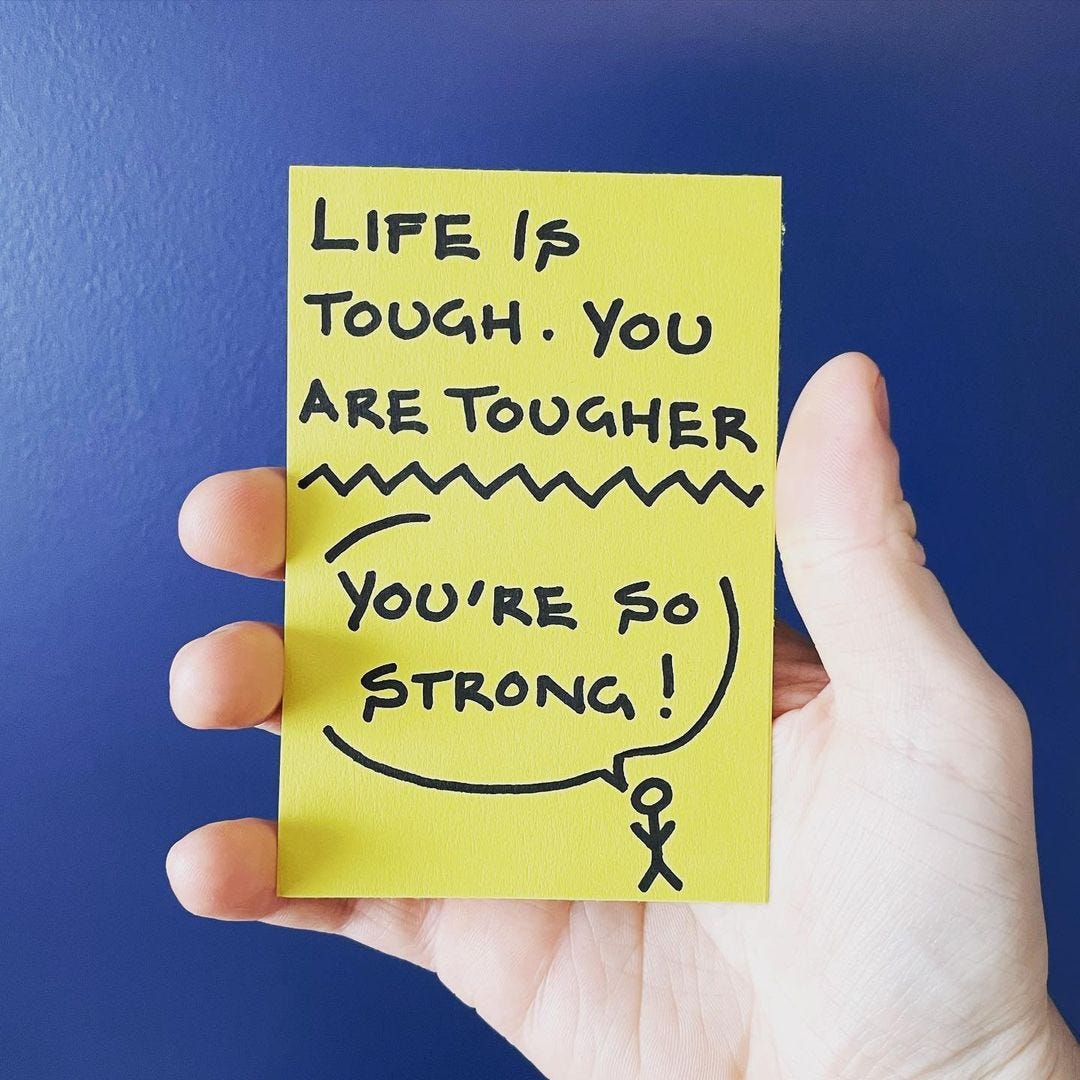 LIFE IS
TOUGH. YOU
ARE TOUGHER
YOU'RE SO
STRONG!